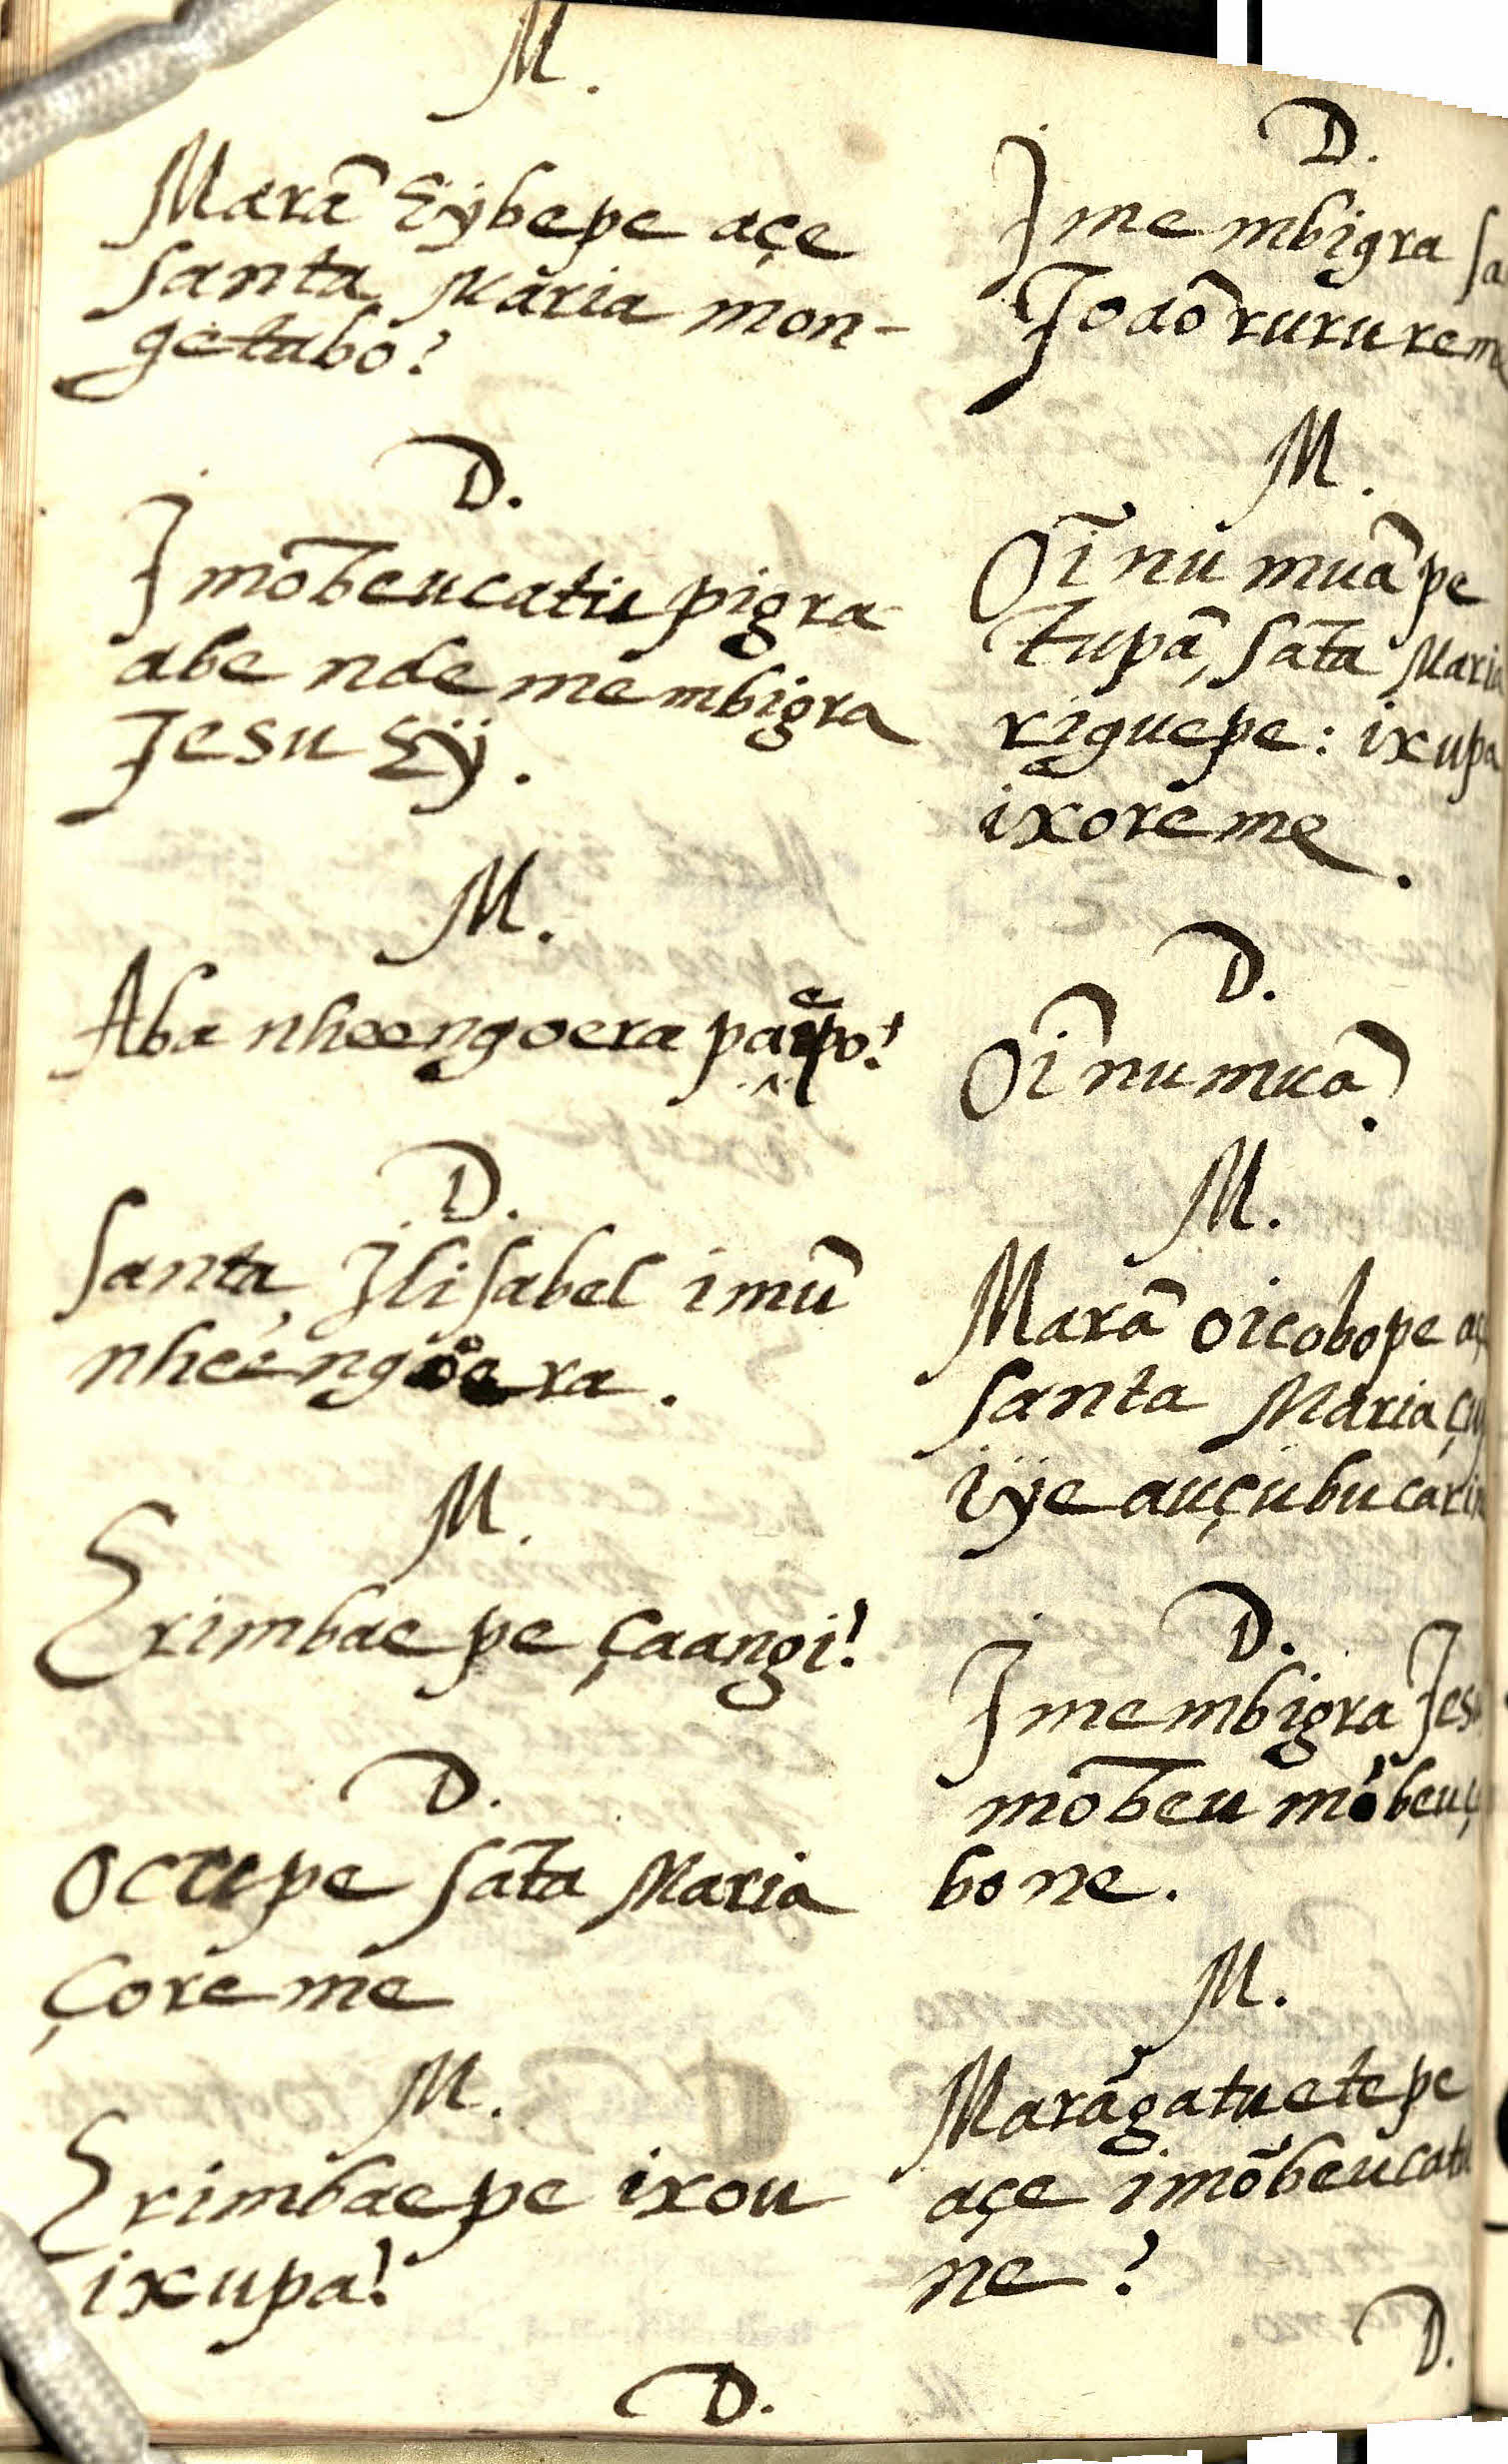 M.
Marã Eÿbepe açe
santa Maria mon-
getabo?
D.
Imõbeucatu pigra
abe nde membigra
Jesu Eÿ.
M.
Aba nheengoera paẽpo?
D.
Santa Ilisabel imũ
nheéngoera.
M.
Erimbae pe çaangi?
D.
Ocrepe sãta Maria
çoreme
M.
Erimbaepe ixou
ixupa?
D.
D.
Imembigra
Joaõ rurureme
M.
Oĩnu muãpe
tupã, sãta Maria
riguepe: ixupa
ixoreme.
D.
Oĩnumuã.
M.
Marã oicobope açe
santa Maria
iÿe auçubucari
D.
Imembigra Jesu
mõbeu mõbeu
bone.
M.
Marãgatuetepe
açe imõbeucatu
ne?
D.